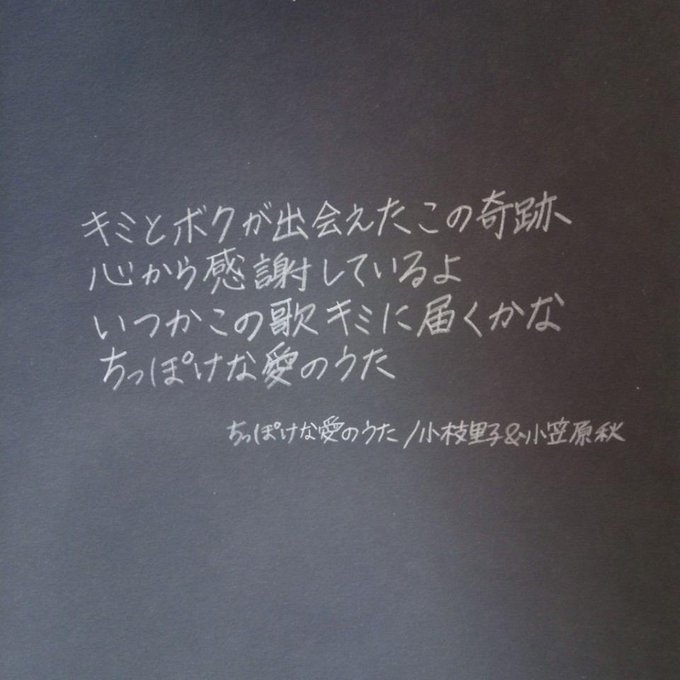 キミとボクが出会えたこの奇跡
心から感謝しているよ
いつかこの歌キミに届くかな
ちっぽけな愛のうた
ちっぽけな愛のうた/小枝理子&小笠原秋